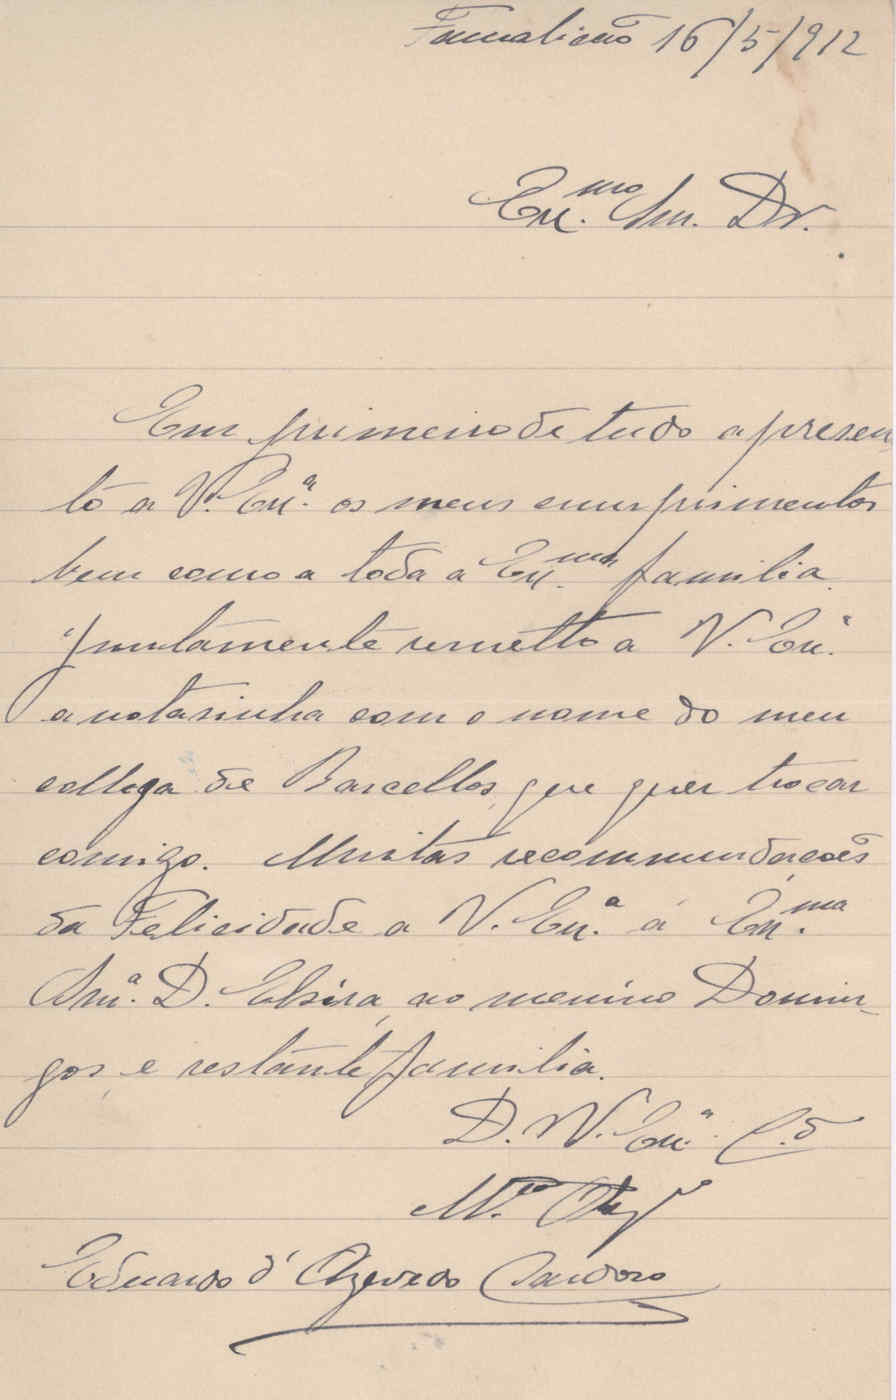 Famalicão 16/5/912
Ex.mo Snr. Dr.
Em primeiro de tudo apresen-
to a V. Ex.a os meus cumprimentos
bem como a toda a Ex.ma familia.
Juntamente remetto a V. Ex.a
a notasinha com o nome do meu
collega de Barcellos, que quer trocar
comigo. Muitas recommendações
da Felicidade a V. Ex.a á Ex.ma
Snr.a D. Elvira, ao menino Domin-
gos, e restante familia.
D. V. Ex.a C.do
M.to Obg.do
Eduardo d'Azevedo Cardoso